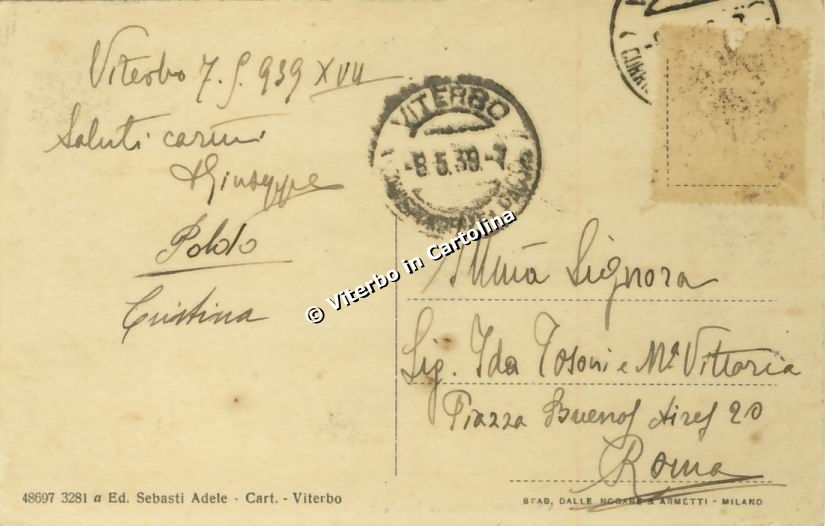 Viterbo 7.5.939 XVII
Saluti carissimi
Giuseppe
Poldo
Cristina
VITERBO
-8.5.39.-7
© Viterbo in Cartolina
Ill.ma Signora
Sig. Ida Tosoni e Mª Vittoria
Piazza Buenos Aires 20
Roma
48697 3281 a Ed. Sebasti Adele - Cart. - Viterbo
STAB. DALLE NOGARE & ARMETTI - MILANO